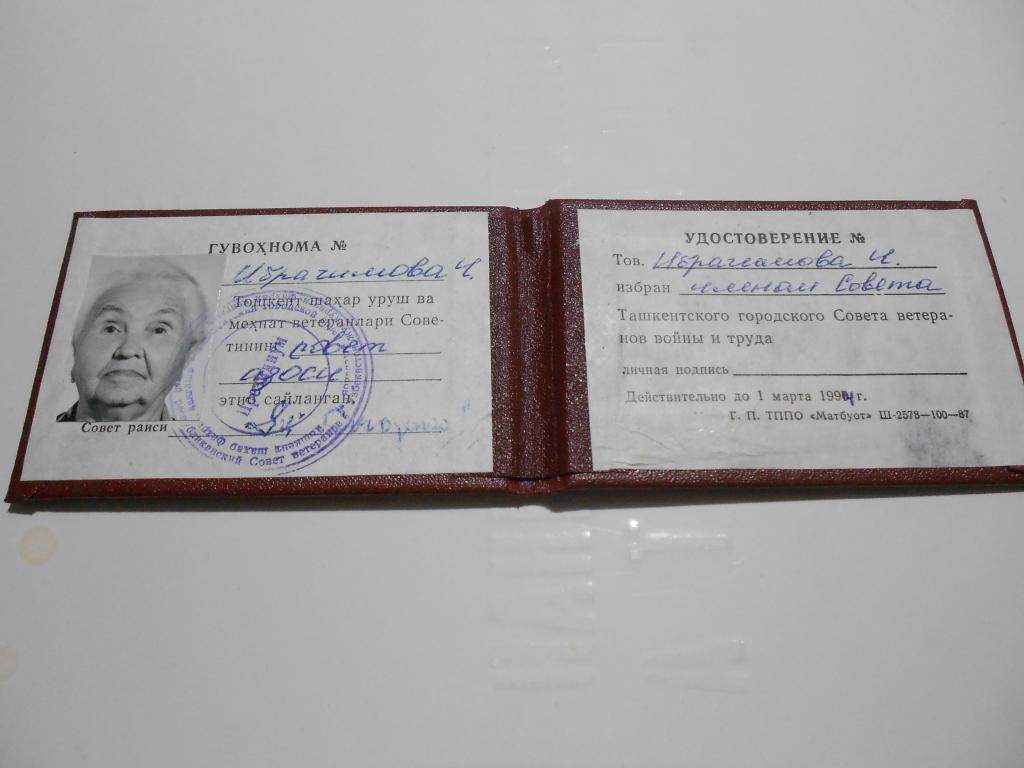 ГУВОҲНОМА №
Ибрагимова И.
Тошкент шаҳар уруш ва
меҳнат ветеранлари Сове-
тининг совет
аъзоси
этиб сайланган
Совет раиси
УДОСТОВЕРЕНИЕ №
Тов. Ибрагимова И.
избран членом Совета
Ташкентского городского Совета ветера-
нов войны и труда
личная подпись
Действительно до 1 марта 1994 г.
Г. П. ТППО «Матбуот» Ш-2578—100—87